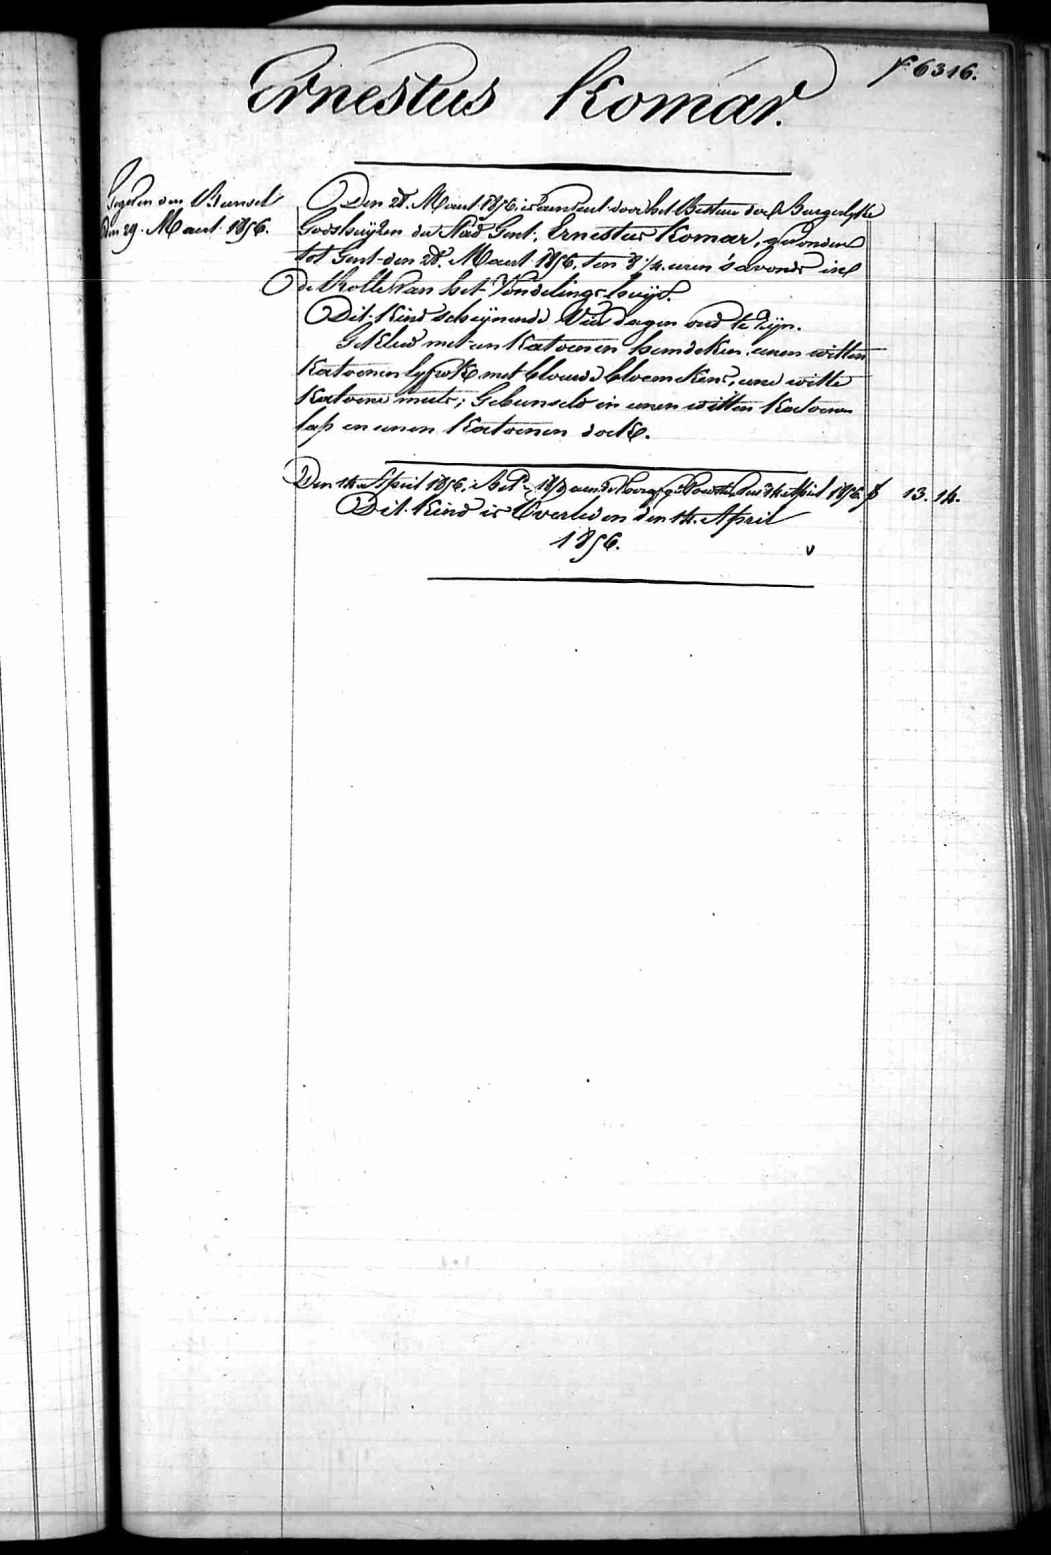 f° 6316.
Ernestus Komar.
Gegeven om Bunsel
den 29. Maart 1856.
Den 28. Maart 1856. is aenveert door het Bestuer der Burgerlyke
Godshuijzen der Stad Gent, Ernestus Komar, gevonden
tot Gent den 28. Maart 1856, ten 8 1/4. uren 's avonds in
de Rolle van het Vondelings-huijs.
Dit Kind scheijnende Vier dagen oud te zijn.
Gekleed met een Katoenen hemdeken, eenen witten
Katoenen lyfrok met blauwe bloemekens, eene witte
Katoene muts; Gebunseld in eenen witten Katoenen
lap en eenen Katoenen doek.
Den 14. April 1856. den 14 April 1856. f 13. 14.
Dit Kind is Overleden den 14. April
1856.